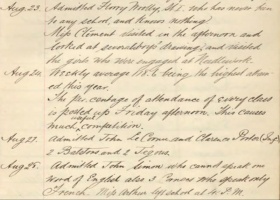 Aug. 23. Admitted Henry Worley, St. 2. who has never been
to any school, and knows nothing.
Miss Climent visited in the afternoon and
looked at seventh drawing, and checked
the girls who were engaged at Needlework.
Aug 24. Weekly average being the highest attained
this year.
The percentage of attendance of every class
is posted up Friday afternoon. This causes
much useful competition.
Aug 27. Admitted John Le Cornu and Clarence Porter (Inf)
2 Balstons and 2 Tizons.
Aug 28. Admitted John Simon who cannot speak one
word of English also 3 Jeunes who speak only
French. Miss Arthur left school at 4 P.M.